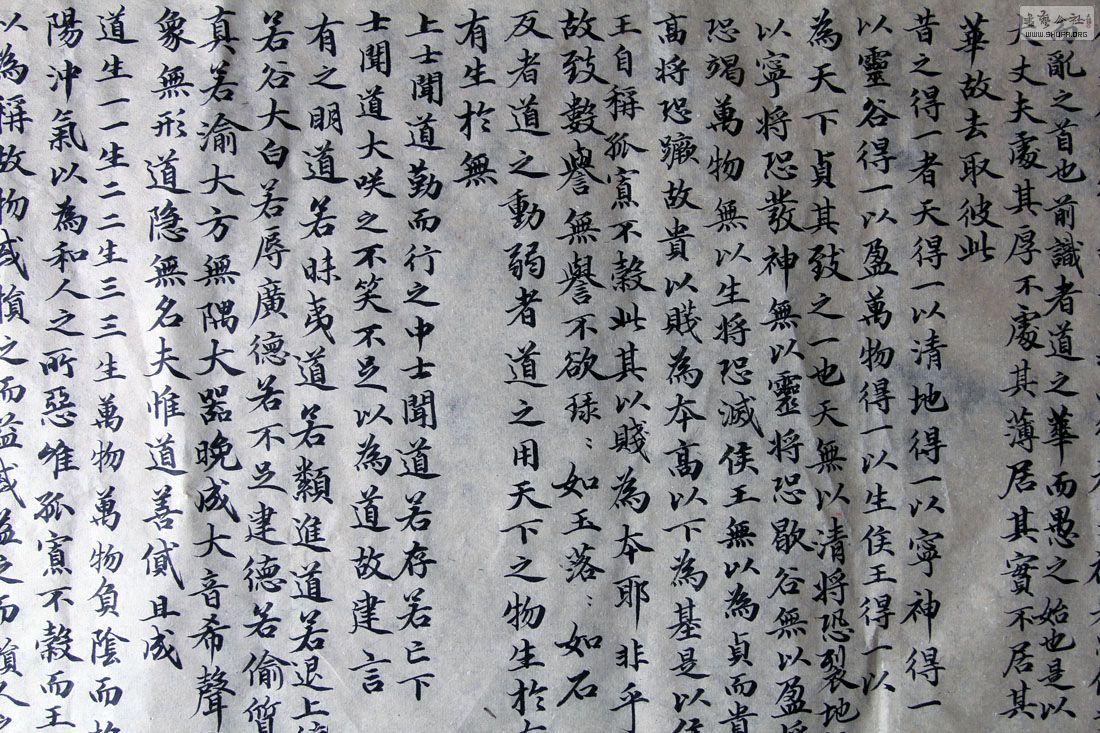 亂之首也前識者道之華而愚之始也是以
大丈夫處其厚不處其薄居其實不居其
華故去取彼此
昔之得一者天得一以清地得一以寧神得一
以靈谷得一以盈萬物得一以生侯王得一以
為天下貞其致之一也天無以清將恐裂地
以寧將恐發神無以靈將恐歇谷無以盈將
恐竭萬物無以生將恐滅侯王無以為貞而貴
高將恐蹶故貴以賤為本高以下為基是以侯
王自稱孤寡不穀此其以賤為本耶非乎
故致數譽無譽不欲琭：如玉落：如石
反者道之動弱者道之用天下之物生於有
有生於無
上士聞道勤而行之中士聞道若存若亡下
士聞道大咲之不笑不足以為道故建言
有之明道若昧夷道若類進道若退上德
若谷大白若辱廣德若不足建德若偷質
真若渝大方無隅大器晚成大音希聲
象無形道隐無名夫惟道善貸且成
道生一一生二二生三三生萬物萬物負陰而抱
陽沖氣以為和人之所惡惟孤寡不穀而王
以為稱故物或損之而益或益之而損人之
書藝公社
WWW.SHUFA.ORG